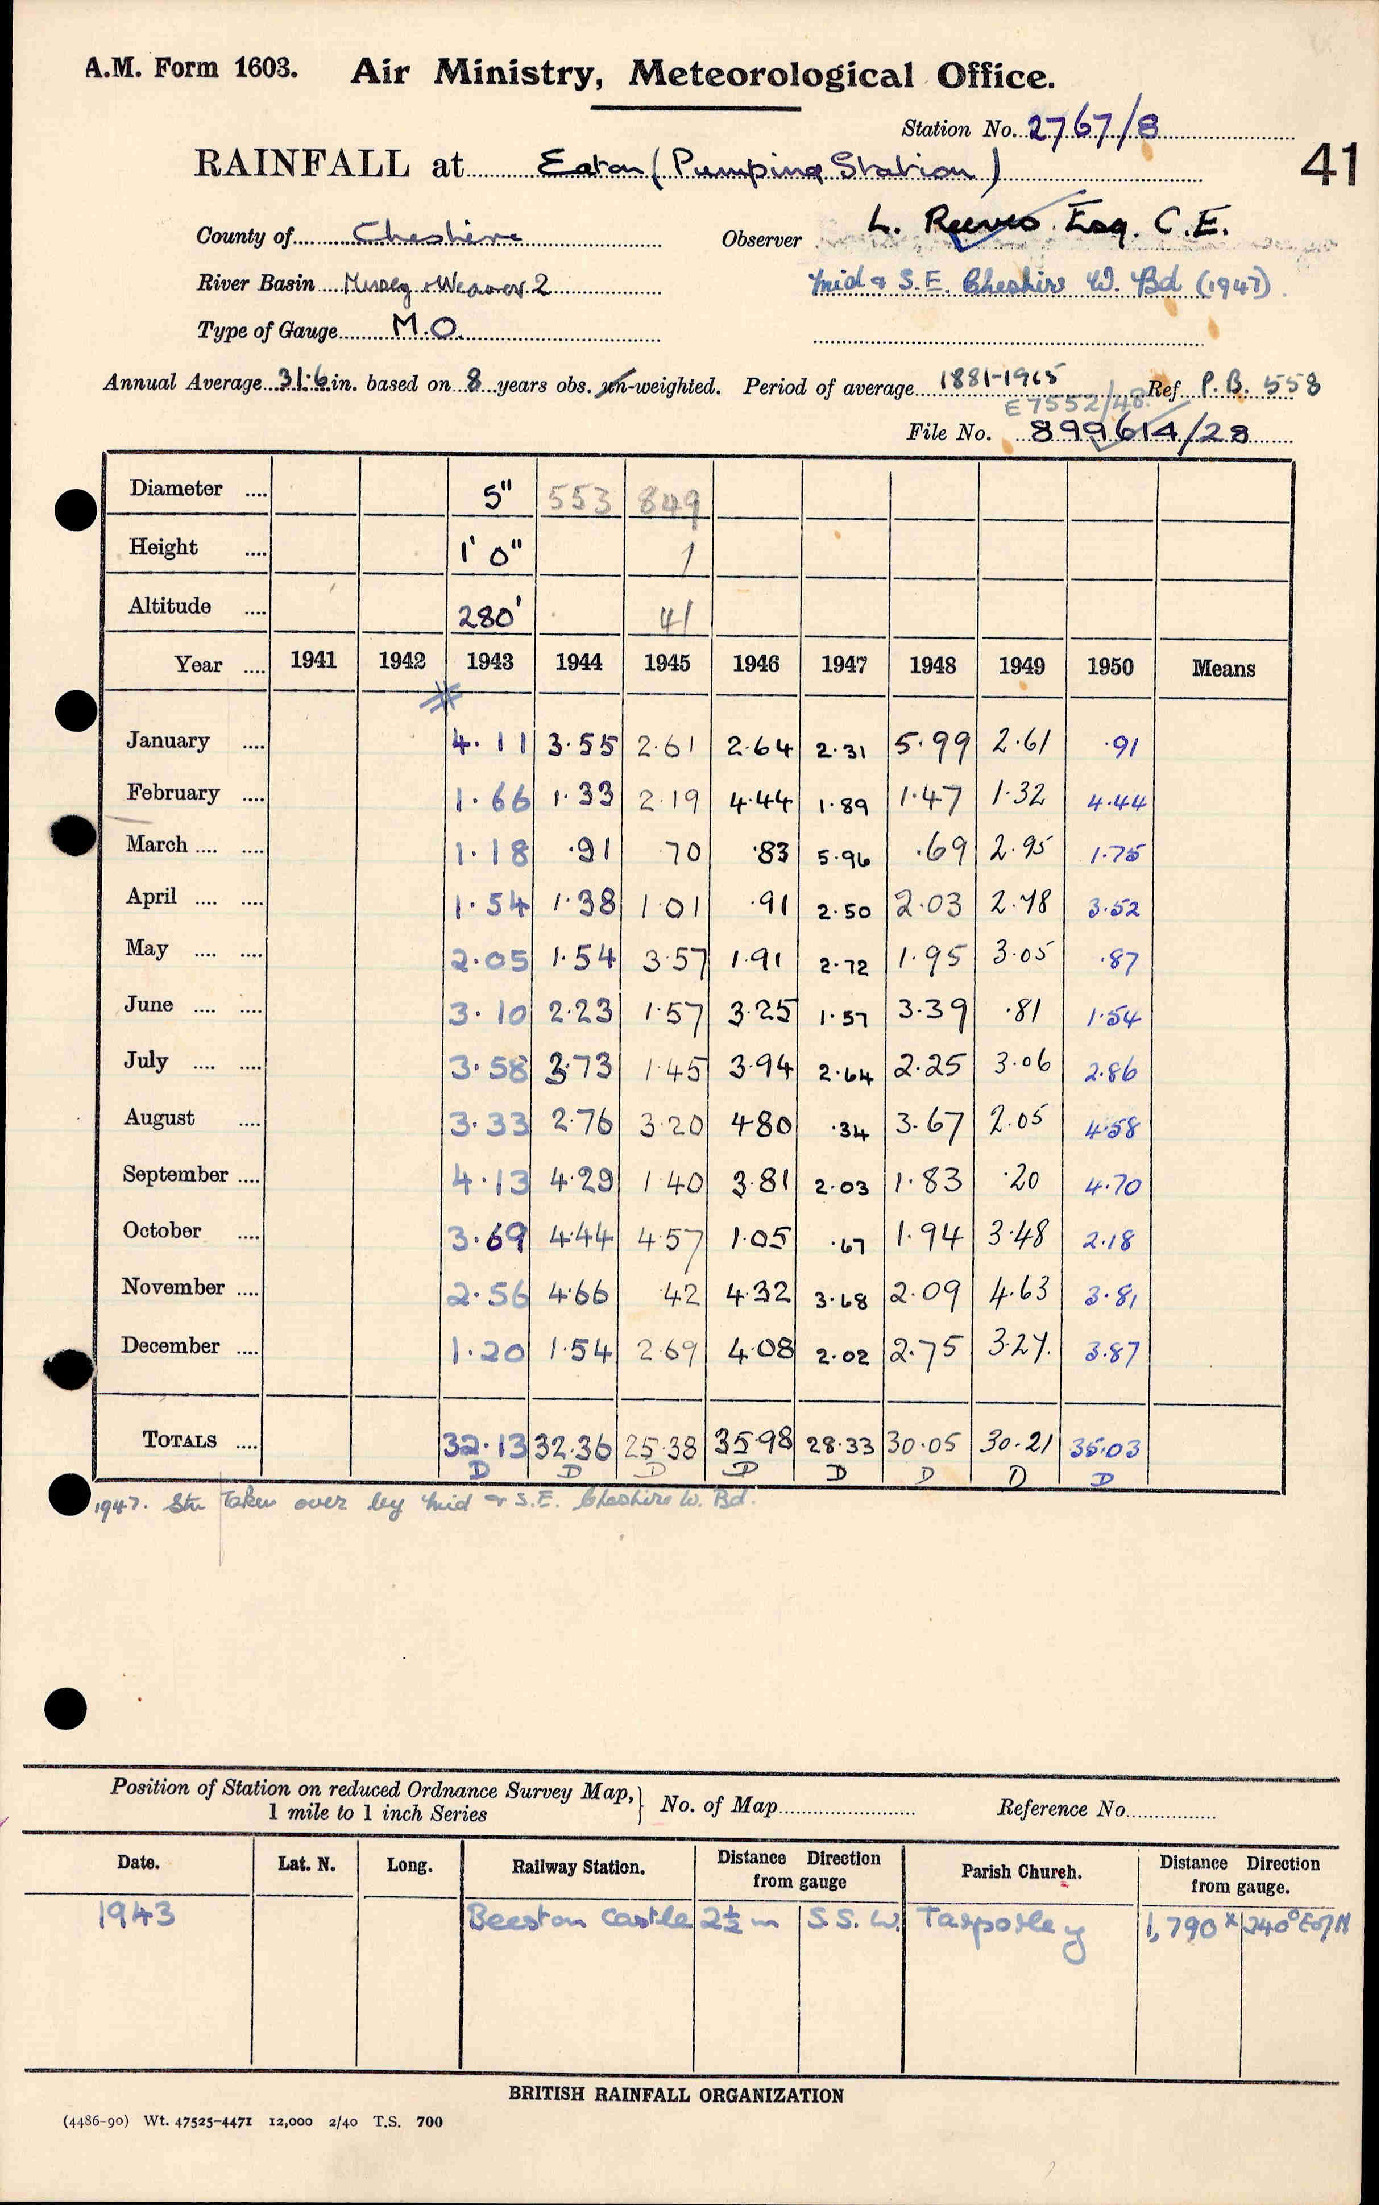 A.M. Form 1603. Air Ministry, Meteorological Office.
Station No. 2767/8
41
RAINFALL at Eaton (Pumping Station)
L. Reeves Esq. C.E.
County of Cheshire Observer
River Basin Mersey & Weaver 2 Mid & S.E. Cheshire W. Bd (1947).
Type of Gauge M.O.
Annual Average 31.6 in. based on 8 years obs. un-weighted. Period of average 1881-1915 Ref P.B. 558
E7552/48
File No. 899614/28
Diameter .... 5" 553 849
Height .... 1' 0" 1
Altitude .... 280' 41
Year .... 1941 1942 1943 1944 1945 1946 1947 1948 1949 1950 Means
January .... 4.11 3.55 2.61 2.64 2.31 5.99 2.61 .91
February .... 1.66 1.33 2.19 4.44 1.89 1.47 1.32 4.44
March .... .... 1.18 .91 70 .83 5.96 .69 2.95 1.75
April .... .... 1.54 1.38 1.01 .91 2.50 2.03 2.78 3.52
May .... .... 2.05 1.54 3.57 1.91 2.72 1.95 3.05 .87
June .... .... 3.10 2.23 1.57 3.25 1.57 3.39 .81 1.54
July .... .... 3.58 3.73 1.45 3.94 2.64 2.25 3.06 2.86
August .... 3.33 2.76 3.20 4.80 .34 3.67 2.05 4.58
September .... 4.13 4.29 1.40 3.81 2.03 1.83 .20 4.70
October .... 3.69 4.44 4.57 1.05 .67 1.94 3.48 2.18
November .... 2.56 4.66 42 4.32 3.68 2.09 4.63 3.81
December .... 1.20 1.54 2.69 4.08 2.02 2.75 3.27. 3.87
TOTALS .... 32.13 32.36 25.38 35.98 28.33 30.05 30.21 35.03
D D D D D D D D
1947. Stn Taken over by Mid & S.E. Cheshire W. Bd.
Position of Station on reduced Ordnance Survey Map, 1 mile to 1 inch Series } No. of Map Reference No.
Date. Lat. N. Long. Railway Station. Distance Direction from gauge Parish Church. Distance Direction from gauge.
1943 Beeston Castle 2½ m S.S.W. Tarporley 1,790 x 240° E of N
BRITISH RAINFALL ORGANIZATION
(4486-90) Wt. 47525-4471 12,000 2/40 T.S. 700